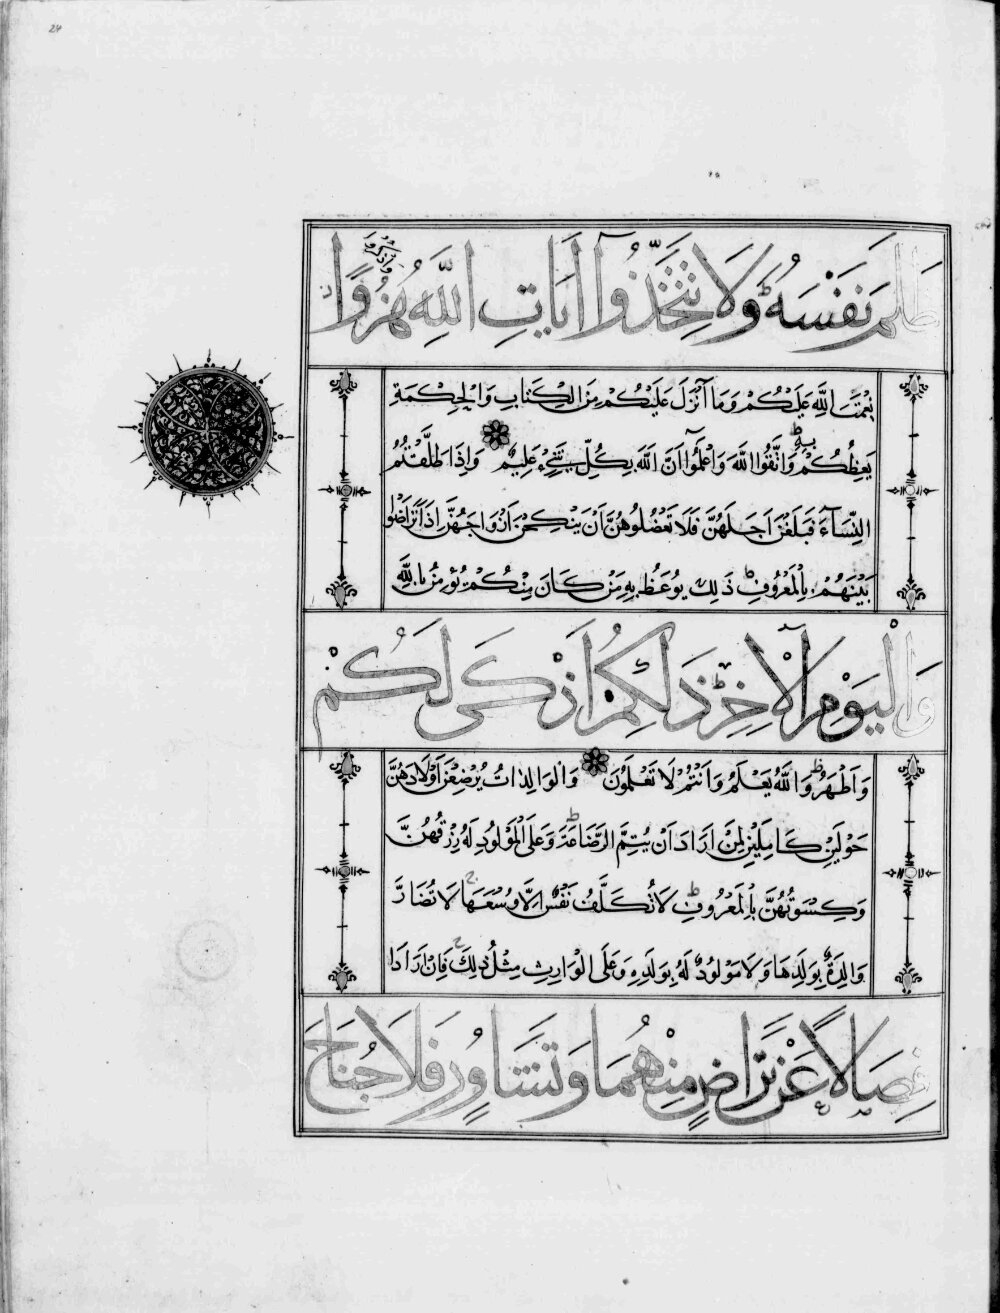 24
ظَلَمَ نَفْسَهُ ط وَلَا تَتَّخِذُوٓا اٰيَاتِ اللّٰهِ هُزُوًا وَاذْكُرُوا
نِعْمَتَ اللّٰهِ عَلَيْكُمْ وَمَا اَنْزَلَ عَلَيْكُمْ مِنَ الْكِتَابِ وَالْحِكْمَةِ
يَعِظُكُمْ بِهِ ط وَاتَّقُوا اللّٰهَ وَاعْلَمُوٓا اَنَّ اللّٰهَ بِكُلِّ شَيْءٍ عَلِيمٌ وَاِذَا طَلَّقْتُمُ
النِّسَآءَ فَبَلَغْنَ اَجَلَهُنَّ فَلَا تَعْضُلُوهُنَّ اَنْ يَنْكِحْنَ اَزْوَاجَهُنَّ اِذَا تَرَاضَوْا
بَيْنَهُمْ بِالْمَعْرُوفِ ط ذٰلِكَ يُوعَظُ بِهِ مَنْ كَانَ مِنْكُمْ يُؤْمِنُ بِاللّٰهِ
وَالْيَوْمِ الْاٰخِرِ ط ذٰلِكُمْ اَزْكٰى لَكُمْ
وَاَطْهَرُ ط وَاللّٰهُ يَعْلَمُ وَاَنْتُمْ لَا تَعْلَمُونَ وَالْوَالِدَاتُ يُرْضِعْنَ اَوْلَادَهُنَّ
حَوْلَيْنِ كَامِلَيْنِ لِمَنْ اَرَادَ اَنْ يُتِمَّ الرَّضَاعَةَ ط وَعَلَى الْمَوْلُودِ لَهُ رِزْقُهُنَّ
وَكِسْوَتُهُنَّ بِالْمَعْرُوفِ ط لَا تُكَلَّفُ نَفْسٌ اِلَّا وُسْعَهَا ج لَا تُضَارَّ
وَالِدَةٌ بِوَلَدِهَا وَلَا مَوْلُودٌ لَهُ بِوَلَدِهِ وَعَلَى الْوَارِثِ مِثْلُ ذٰلِكَ ج فَاِنْ اَرَادَا
فِصَالًا عَنْ تَرَاضٍ مِنْهُمَا وَتَشَاوُرٍ فَلَا جُنَاحَ